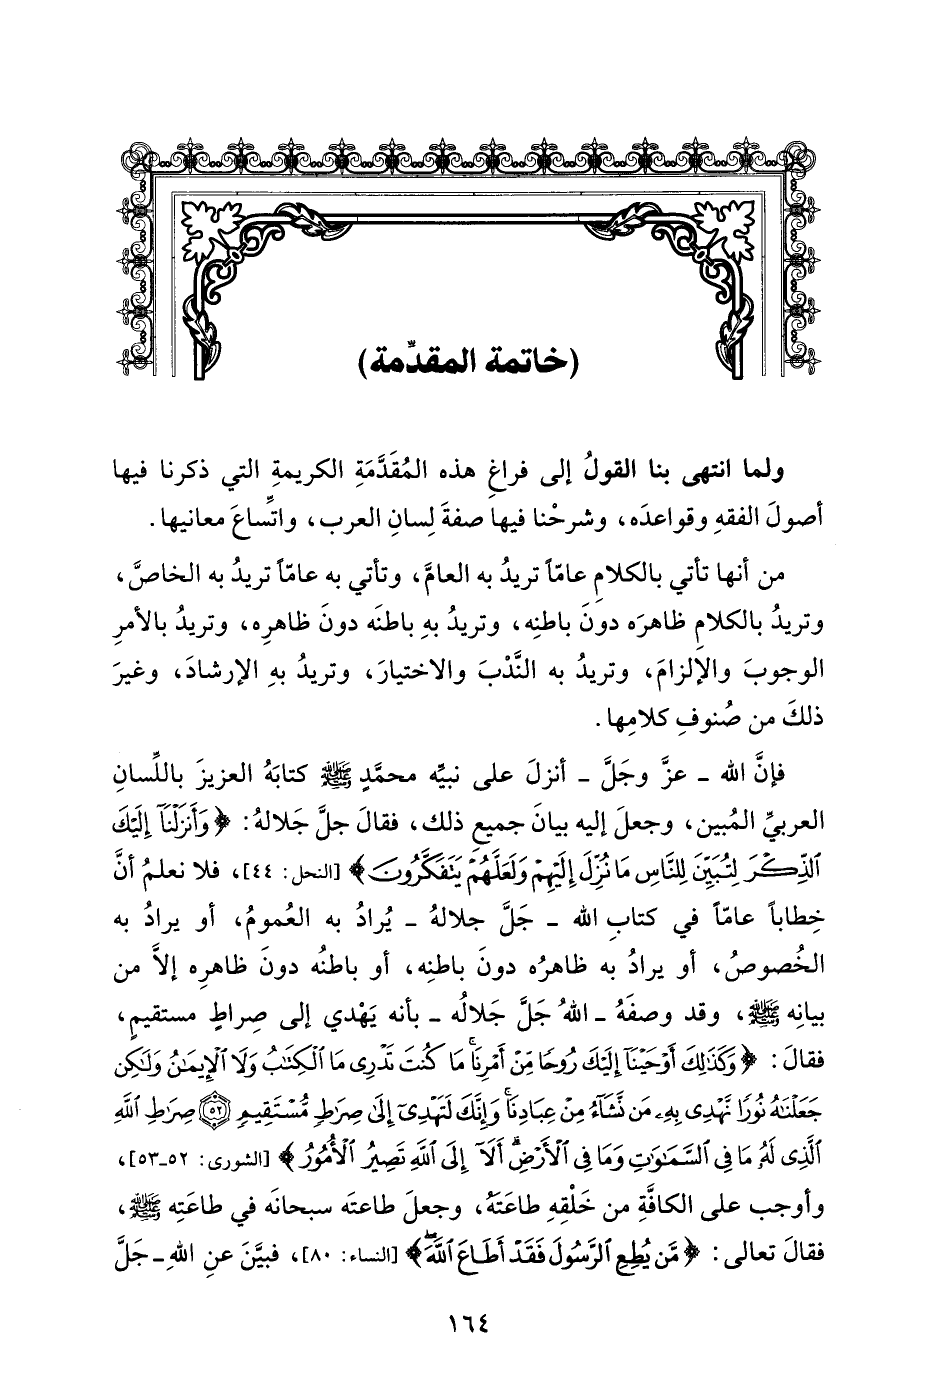 (خاتمة المقدِّمة)
ولما انتهى بنا القولُ إلى فراغِ هذه المُقَدَّمَةِ الكريمةِ التي ذكرنا فيها
أصولَ الفقهِ وقواعدَه، وشرحْنا فيها صفةَ لِسانِ العرب، واتِّساعَ معانيها.
من أنها تأتي بالكلامِ عامّاً تريدُ به العامَّ، وتأتي به عامّاً تريدُ به الخاصَّ،
وتريدُ بالكلامِ ظاهرَه دونَ باطنِه، وتريدُ بهِ باطنَه دونَ ظاهرِه، وتريدُ بالأمرِ
الوجوبَ والإلزامَ، وتريدُ به النَّدْبَ والاختيارَ، وتريدُ بهِ الإرشادَ، وغيرَ
ذلكَ من صُنوفِ كلامِها.
فإنَّ الله ـ عزَّ وجَلَّ ـ أنزلَ على نبيِّه محمَّدٍ ﷺ كتابَهُ العزيزَ باللِّسانِ
العربيِّ المُبين، وجعلَ إليه بيانَ جميعِ ذلك، فقالَ جلَّ جَلالهُ: ﴿وَأَنزَلْنَآ إِلَيْكَ
ٱلذِّكْرَ لِتُبَيِّنَ لِلنَّاسِ مَا نُزِّلَ إِلَيْهِمْ وَلَعَلَّهُمْ يَتَفَكَّرُونَ﴾ [النحل: ٤٤]، فلا نعلمُ أنَّ
خِطاباً عامّاً في كتابِ الله ـ جَلَّ جلالهُ ـ يُرادُ به العُمومُ، أو يرادُ به
الخُصوصُ، أو يرادُ به ظاهرُه دونَ باطنِه، أو باطنُه دونَ ظاهرِه إلاَّ من
بيانِه ﷺ، وقد وصفَهُ ـ اللهُ جَلَّ جَلالُه ـ بأنه يَهْدي إلى صِراطٍ مستقيمٍ،
فقالَ: ﴿وَكَذَٰلِكَ أَوْحَيْنَآ إِلَيْكَ رُوحًا مِّنْ أَمْرِنَا ۚ مَا كُنتَ تَدْرِى مَا ٱلْكِتَٰبُ وَلَا ٱلْإِيمَٰنُ وَلَٰكِن
جَعَلْنَٰهُ نُورًا نَّهْدِى بِهِۦ مَن نَّشَآءُ مِنْ عِبَادِنَا ۚ وَإِنَّكَ لَتَهْدِىٓ إِلَىٰ صِرَٰطٍ مُّسْتَقِيمٍ ۝٥٢ صِرَٰطِ ٱللَّهِ
ٱلَّذِى لَهُۥ مَا فِى ٱلسَّمَٰوَٰتِ وَمَا فِى ٱلْأَرْضِ ۗ أَلَآ إِلَى ٱللَّهِ تَصِيرُ ٱلْأُمُورُ﴾ [الشورى: ٥٢ـ٥٣]،
وأوجب على الكافَّةِ من خَلْقِهِ طاعَتَهُ، وجعلَ طاعتَه سبحانَه في طاعَتِه ﷺ،
فقالَ تعالى: ﴿مَّن يُطِعِ ٱلرَّسُولَ فَقَدْ أَطَاعَ ٱللَّهَ ۖ﴾ [النساء: ٨٠]، فبيَّنَ عنِ اللهِ ـ جَلَّ
١٦٤